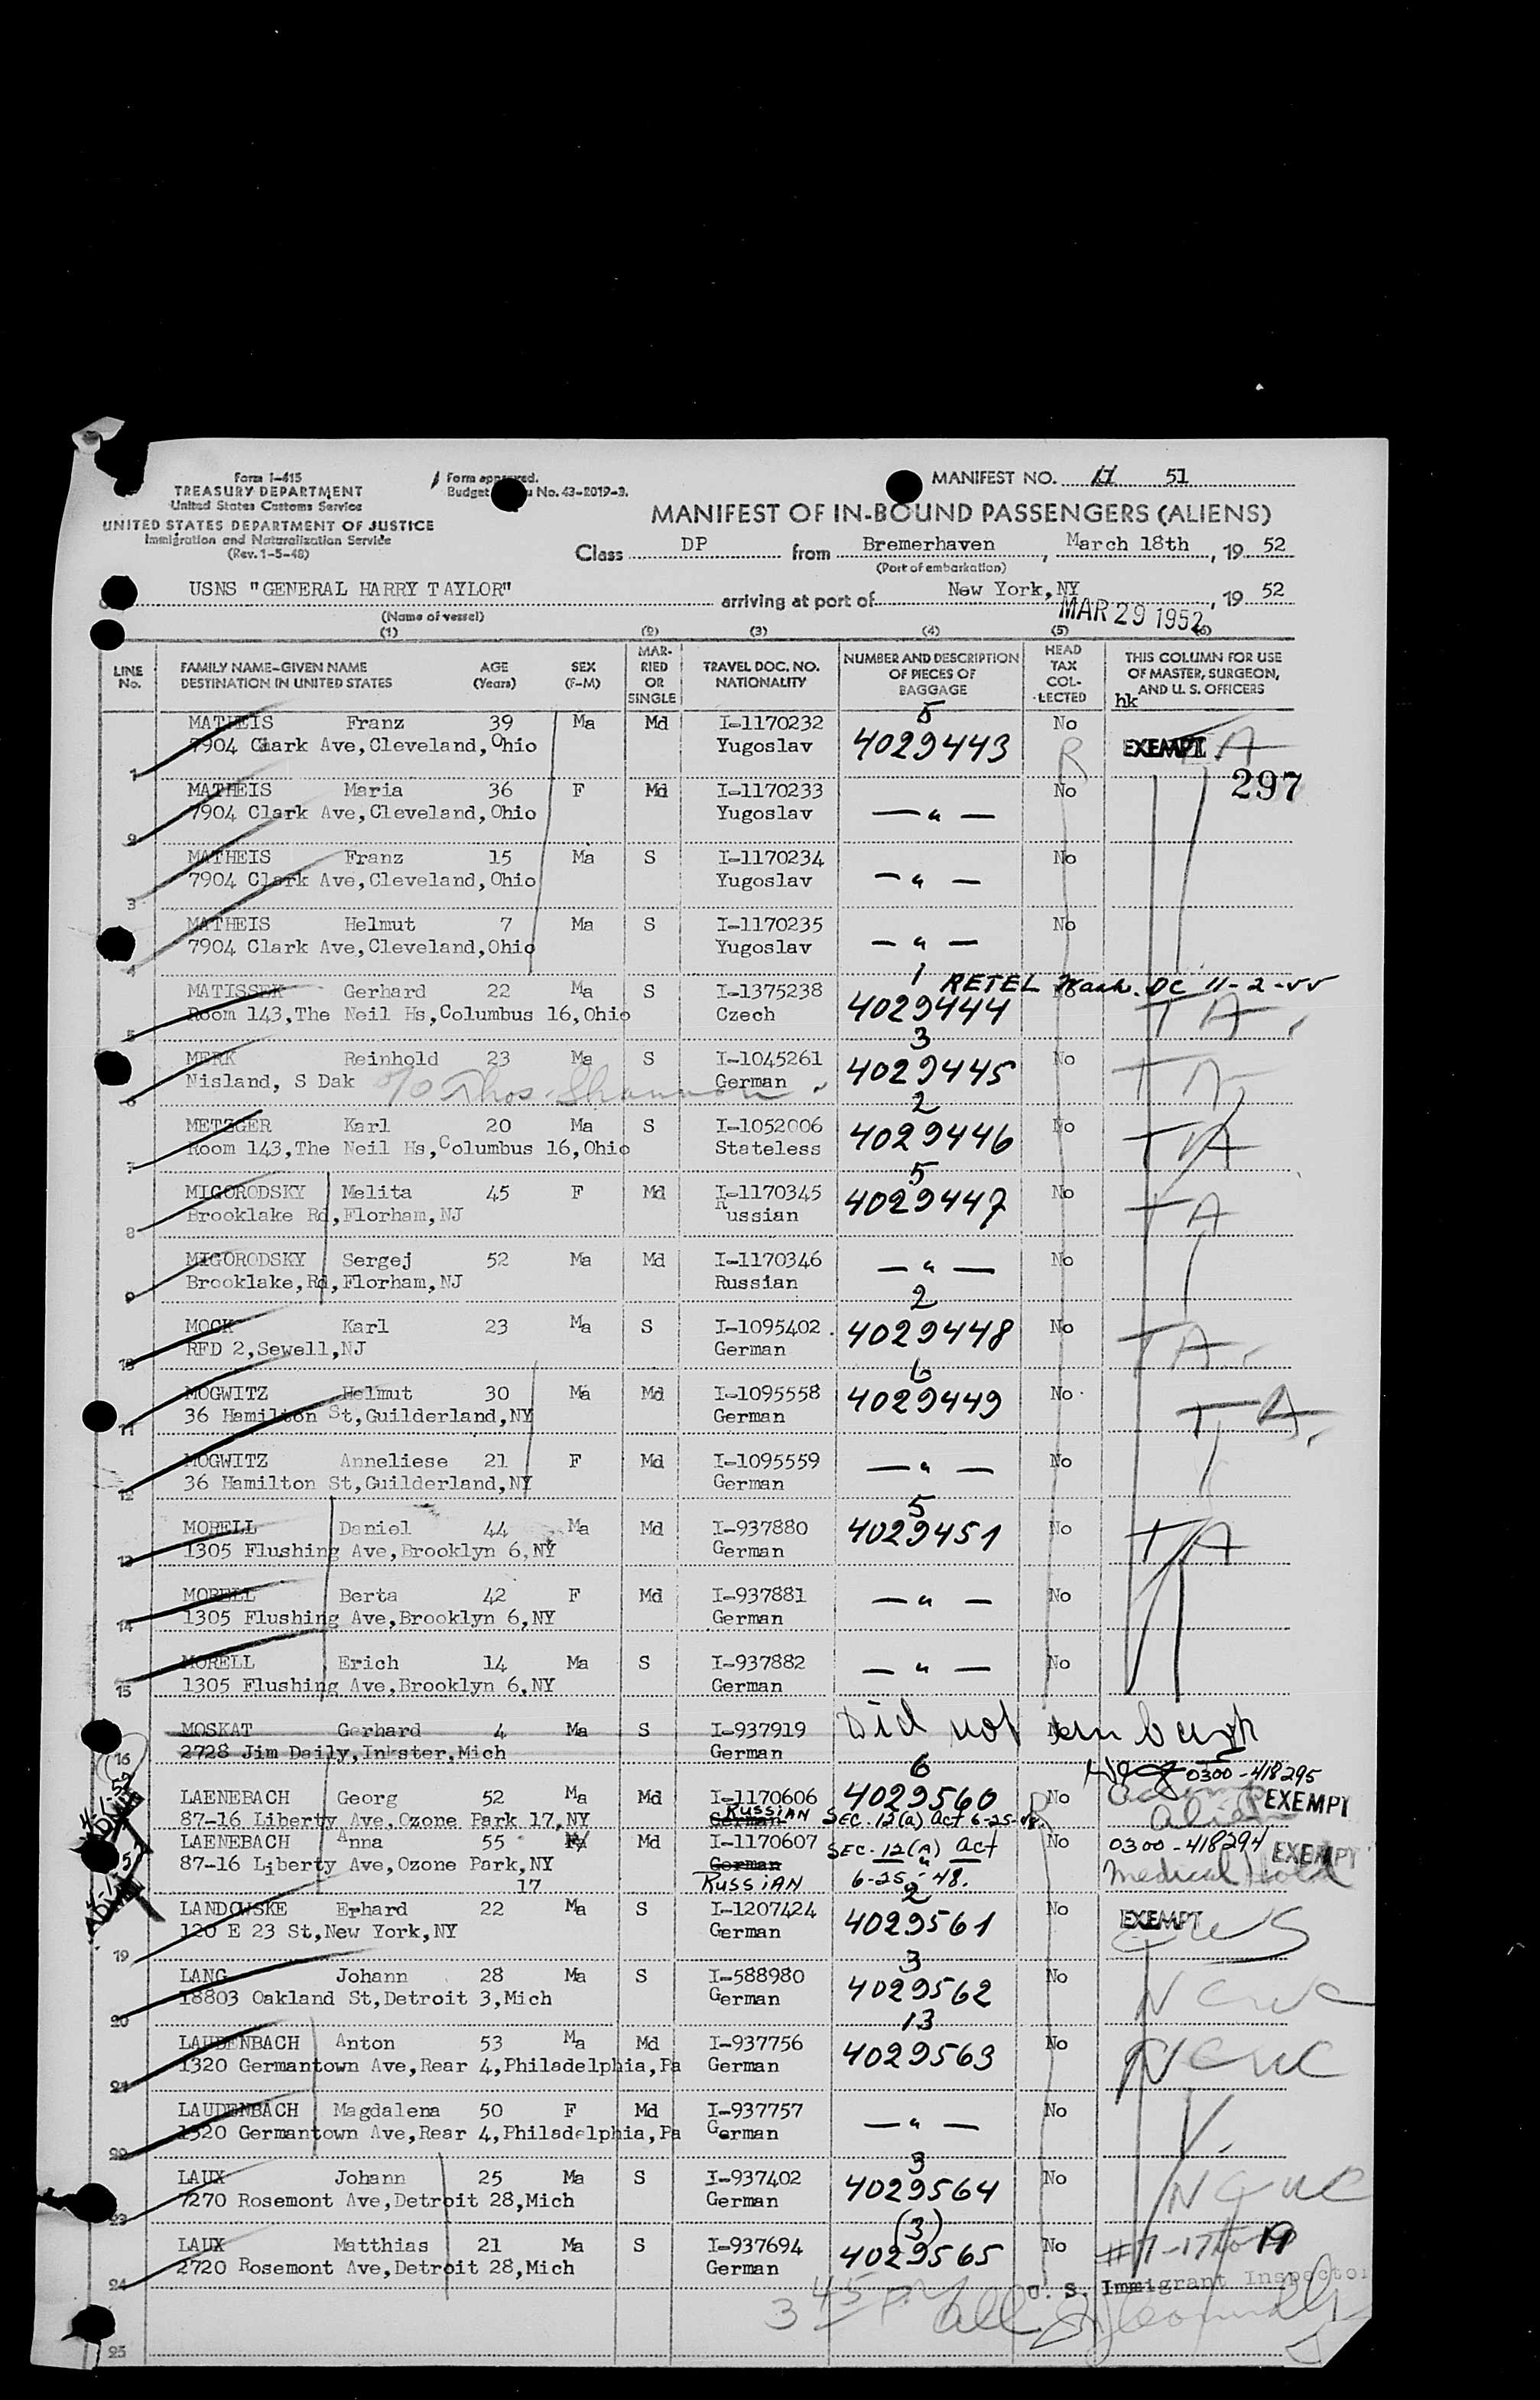 Form I-415
TREASURY DEPARTMENT
United States Customs Service
UNITED STATES DEPARTMENT OF JUSTICE
Immigration and Naturalization Service
(Rev. 1-5-48)
Form approved.
Budget No. 43-2019-3.
MANIFEST NO. 51
MANIFEST OF IN-BOUND PASSENGERS (ALIENS)
Class DP from Bremerhaven, March 18th, 19 52
(Port of embarkation)
USNS "GENERAL HARRY TAYLOR" arriving at port of New York, NY, 19 52
(Name of vessel)
MAR 29 1952
(1) (2) (3) (4) (5) (6)
LINE No. FAMILY NAME–GIVEN NAME DESTINATION IN UNITED STATES AGE (Years) SEX (F-M) MARRIED OR SINGLE TRAVEL DOC. NO. NATIONALITY NUMBER AND DESCRIPTION OF PIECES OF BAGGAGE HEAD TAX COLLECTED THIS COLUMN FOR USE OF MASTER, SURGEON, AND U. S. OFFICERS
hk
5
MATHEIS Franz 39 Ma Md I-1170232 No
1 7904 Clark Ave,Cleveland,Ohio Yugoslav 4029443 R EXEMPT TA
297
MATHEIS Maria 36 F Md I-1170233 No
2 7904 Clark Ave,Cleveland,Ohio Yugoslav — " —
MATHEIS Franz 15 Ma S I-1170234 No
3 7904 Clark Ave,Cleveland,Ohio Yugoslav — " —
MATHEIS Helmut 7 Ma S I-1170235 No
4 7904 Clark Ave,Cleveland,Ohio Yugoslav — " —
1 RETEL Wash. DC 11-2-55
MATISSEK Gerhard 22 Ma S I-1375238 No
5 Room 143,The Neil Hs,Columbus 16,Ohio Czech 4029444 TA.
3
MERK Reinhold 23 Ma S I-1045261 No
6 Nisland, S Dak c/o Thos. Shannon German 4029445 TA
2
METZGER Karl 20 Ma S I-1052006 No
7 Room 143,The Neil Hs,Columbus 16,Ohio Stateless 4029446 TA
5
MIGORODSKY Melita 45 F Md I-1170345 No
8 Brooklake Rd,Florham,NJ Russian 4029447 TA
MIGORODSKY Sergej 52 Ma Md I-1170346 No
9 Brooklake,Rd,Florham,NJ Russian — " —
2
MOCK Karl 23 Ma S I-1095402 No
10 RFD 2,Sewell,NJ German 4029448 TA.
6
MOGWITZ Helmut 30 Ma Md I-1095558 No
11 36 Hamilton St,Guilderland,NY German 4029449 TA.
MOGWITZ Anneliese 21 F Md I-1095559 No
12 36 Hamilton St,Guilderland,NY German — " —
5
MORELL Daniel 44 Ma Md I-937880 No
13 1305 Flushing Ave,Brooklyn 6,NY German 4029451 TA
MORELL Berta 42 F Md I-937881 No
14 1305 Flushing Ave,Brooklyn 6,NY German — " —
MORELL Erich 14 Ma S I-937882 No
15 1305 Flushing Ave,Brooklyn 6,NY German — " —
MOSKAT Gerhard 4 Ma S I-937919 Did not embark
16 2728 Jim Daily,Inkster,Mich German
6 0300-418295
LAENEBACH Georg 52 Ma Md I-1170606 4029560 No
87-16 Liberty Ave,Ozone Park 17,NY German RUSSIAN SEC. 12(a) act 6-25-48. R EXEMPT
LAENEBACH Anna 55 Md I-1170607 SEC. 12(A) act No 0300-418294 EXEMPT
87-16 Liberty Ave,Ozone Park,NY German " Medical Hold
17 RUSSIAN 6-25-48.
2
LANDOWSKE Erhard 22 Ma S I-1207424 No EXEMPT
19 120 E 23 St,New York,NY German 4029561 CWS
3
LANG Johann 28 Ma S I-588980 No
20 18803 Oakland St,Detroit 3,Mich German 4029562 NCWC
13
LAUDENBACH Anton 53 Ma Md I-937756 No
21 1320 Germantown Ave,Rear 4,Philadelphia,Pa German 4029563 NCWC
LAUDENBACH Magdalena 50 F Md I-937757 No
22 1320 Germantown Ave,Rear 4,Philadelphia,Pa German — " —
3
LAUX Johann 25 Ma S I-937402 No
23 7270 Rosemont Ave,Detroit 28,Mich German 4029564 NCWC
(3)
LAUX Matthias 21 Ma S I-937694 No
24 2720 Rosemont Ave,Detroit 28,Mich German 4029565 19
U. S. Immigrant Inspector
345 P.M. all
25